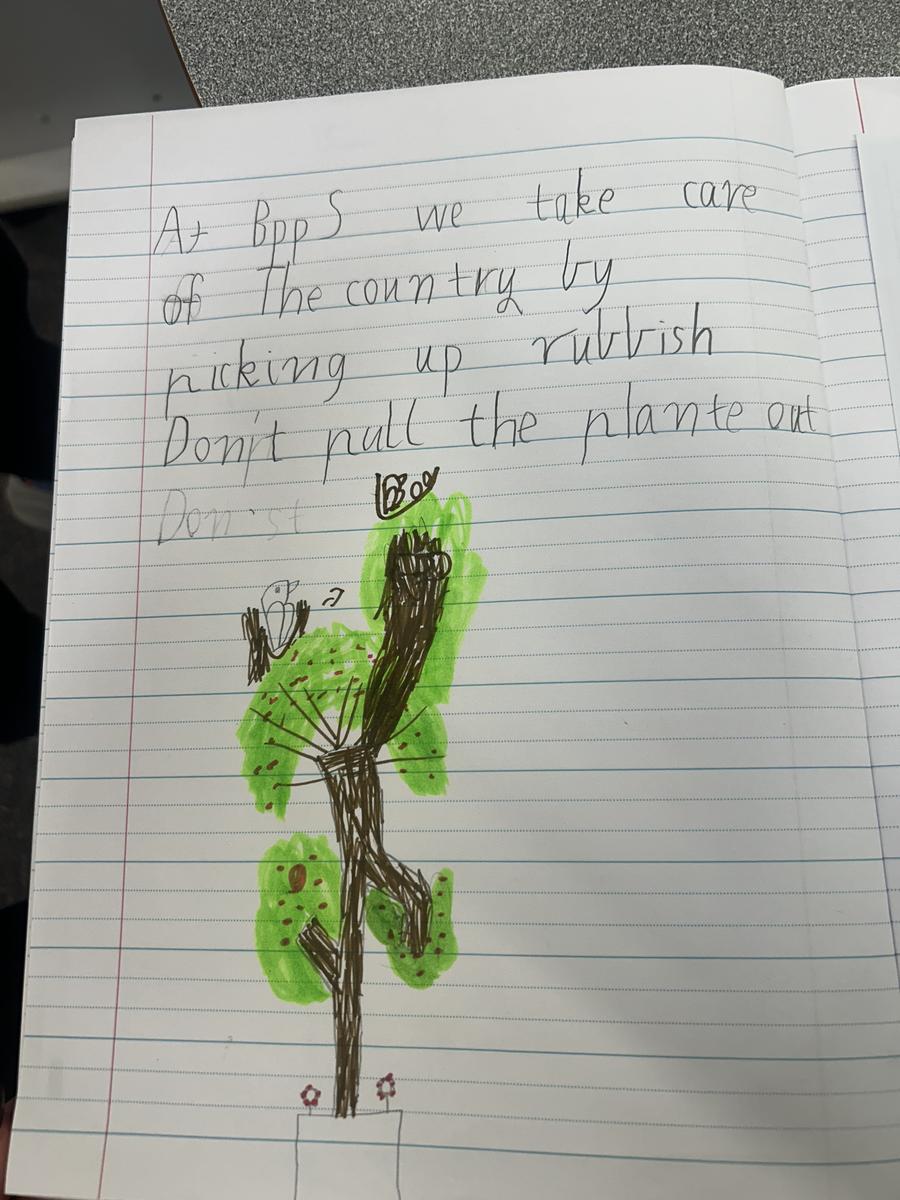 At BppS we take care
of The country by
picking up rubbish
Don't pull the plante out